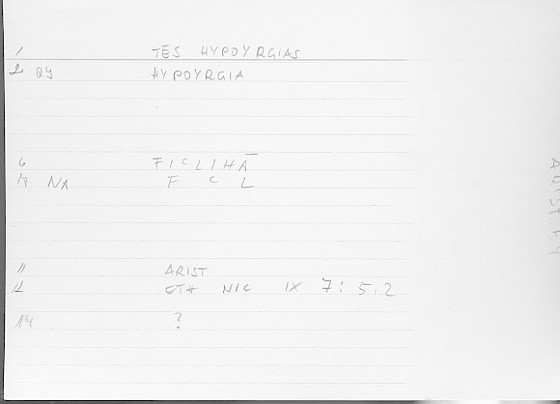 1 TES HYPOYRGIAS
2 QY HYPOYRGIA
6 FICLIHĀ
7 NA F C L
11 ARIST
12 ETH NIC IX 7: 5.2
14 ?